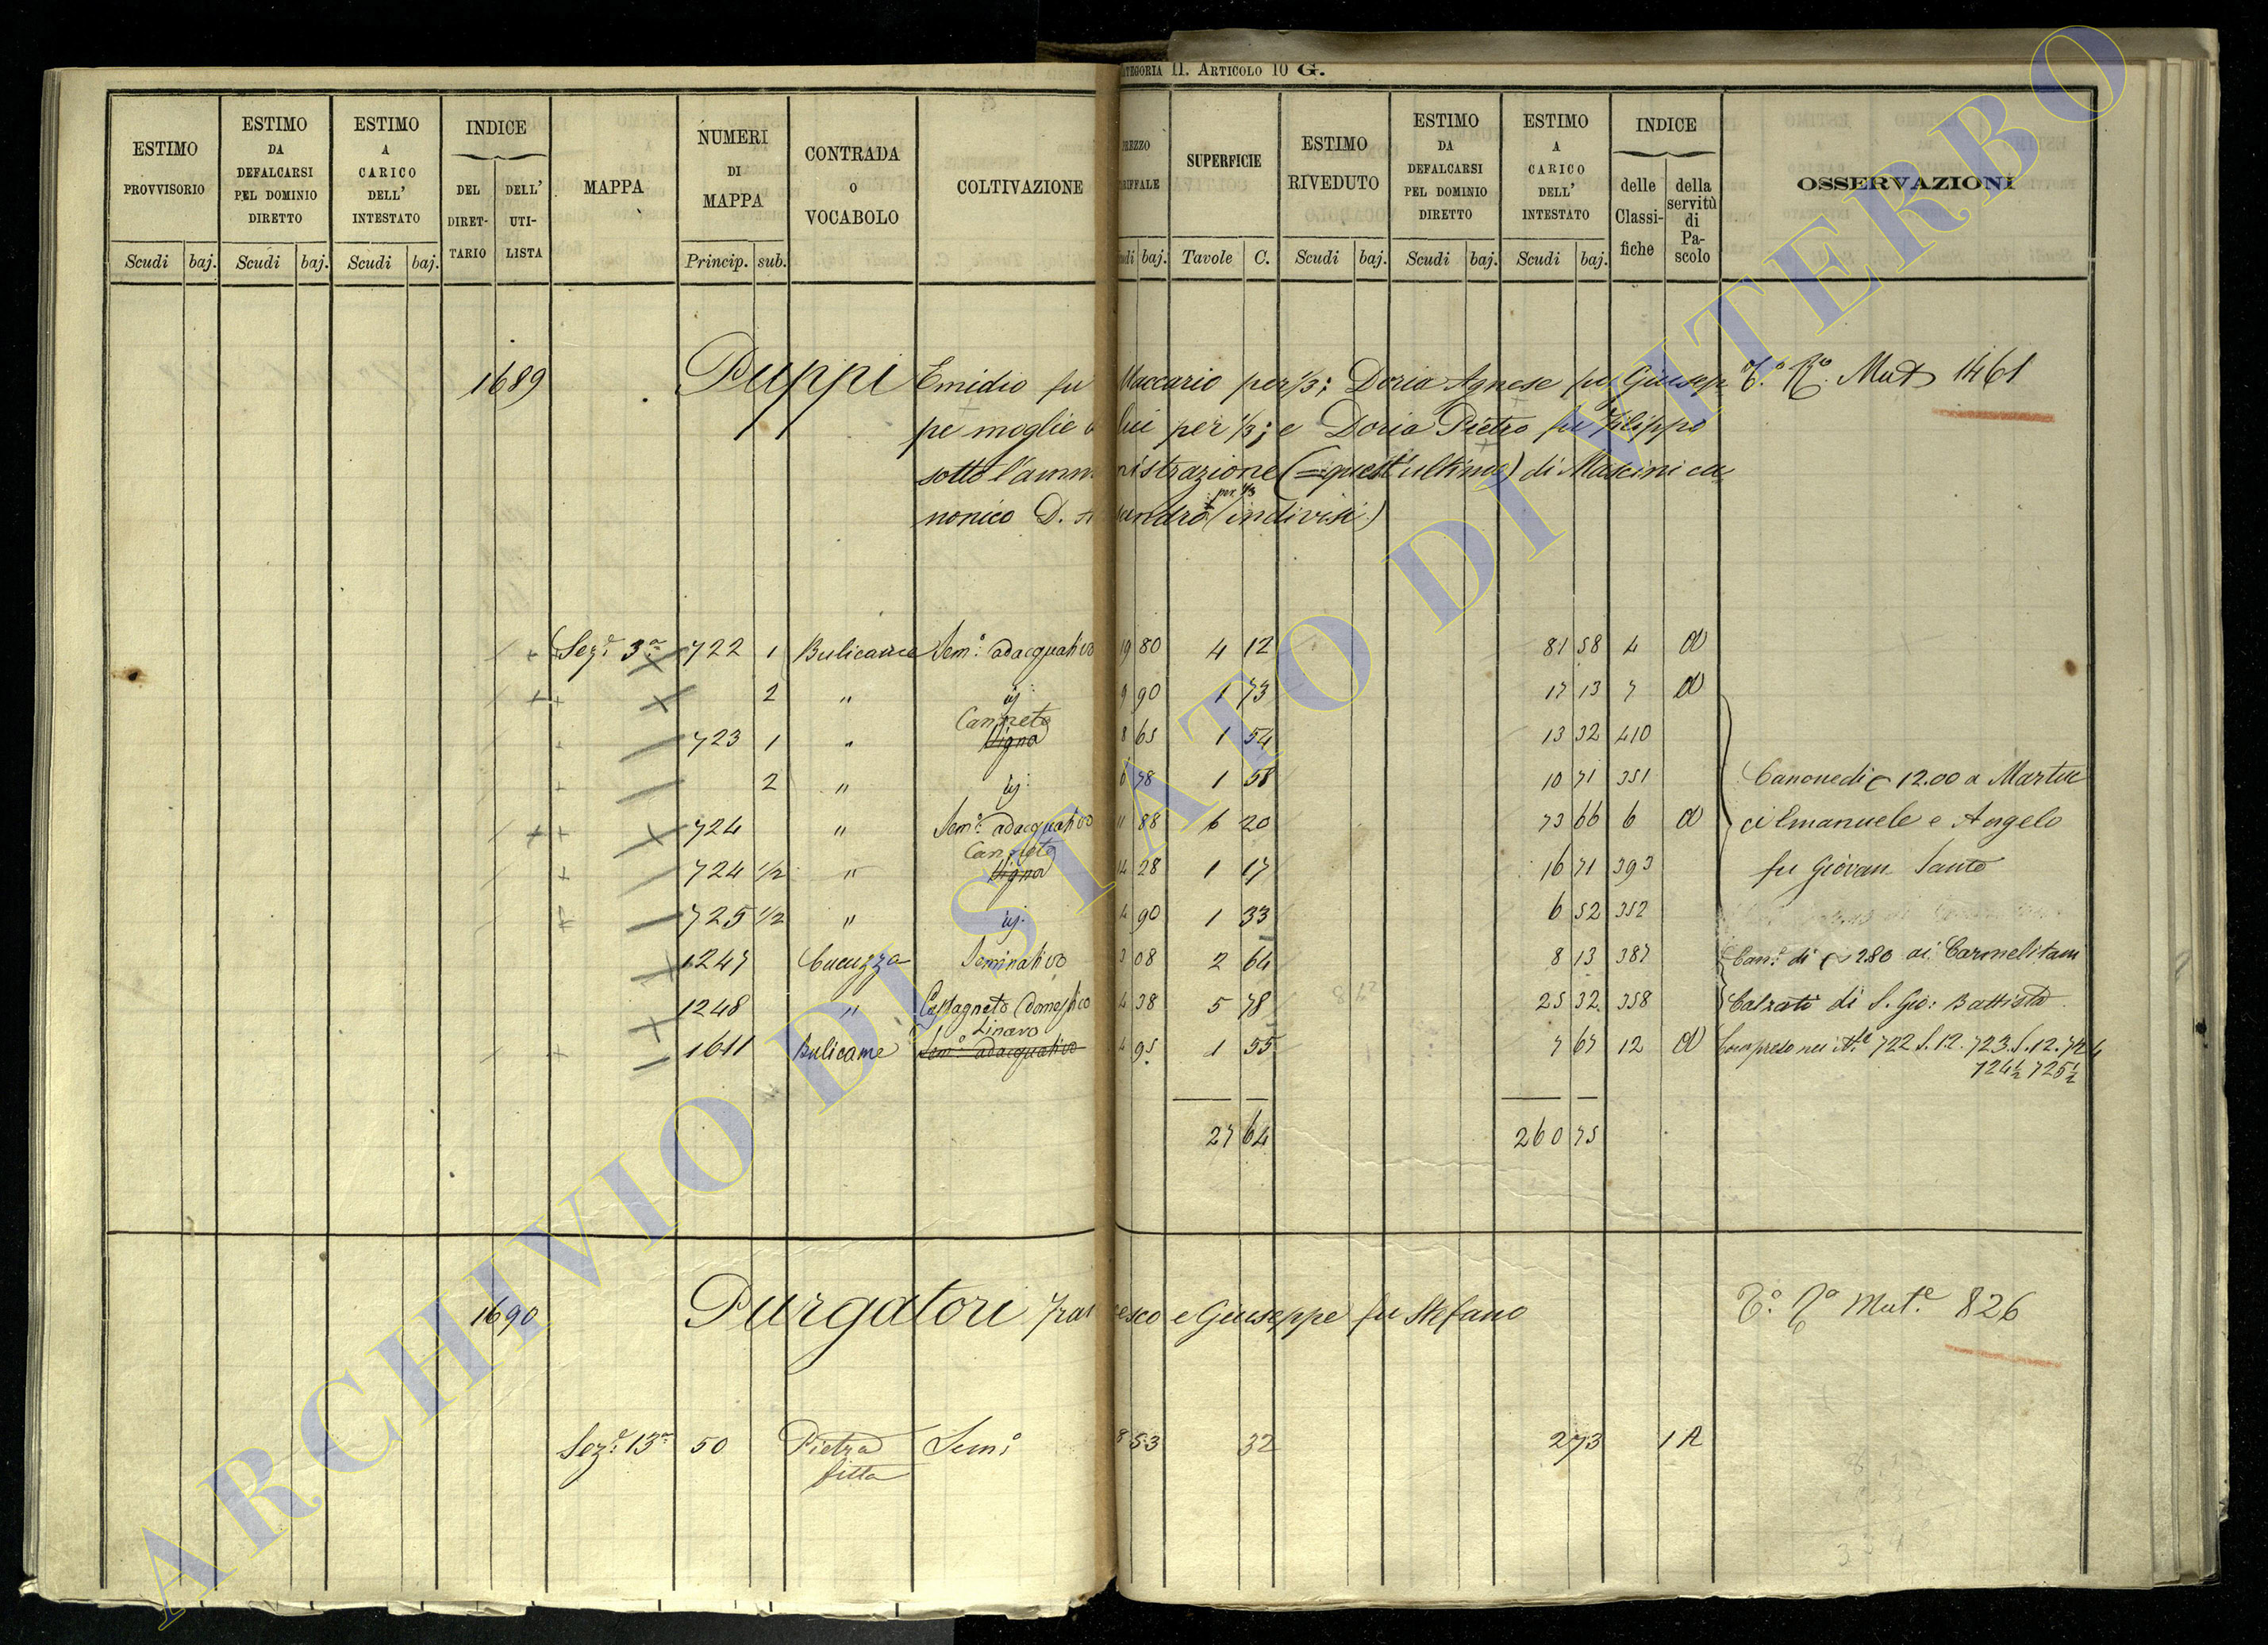 CATEGORIA II. ARTICOLO 10 G.
ESTIMO PROVVISORIO
Scudi baj.
ESTIMO DA DEFALCARSI PEL DOMINIO DIRETTO
Scudi baj.
ESTIMO A CARICO DELL' INTESTATO
Scudi baj.
INDICE
DEL DIRETTARIO
DELL' UTILISTA
MAPPA
NUMERI DI MAPPA
Princip. sub.
CONTRADA O VOCABOLO
COLTIVAZIONE
PREZZO
baj.
SUPERFICIE
Tavole C.
ESTIMO RIVEDUTO
Scudi baj.
ESTIMO DA DEFALCARSI PEL DOMINIO DIRETTO
Scudi baj.
ESTIMO A CARICO DELL' INTESTATO
Scudi baj.
INDICE
delle Classifiche
della servitù di Pascolo
OSSERVAZIONI
1689 Puppi Emidio fu Maccario per 1/3; Doria Agnese fu Giusep Mut 1461
pe moglie lui per 1/3; e Doria Pietro fu Filippo
sotto l'amministrazione (=quest'ultimo) di Mascini ca
per 1/3
nonico D. (indivisi)
Sez.e 3a 722 1 Bulicame Sem.o adacquativo 19 80 4 12 81 58 4 A
2 " id. 9 90 1 73 17 13 7 A
Canneto
723 1 " Vigna 8 65 1 54 13 32 410
2 " id. 6 78 1 58 10 71 351 Canone di 12.00 a Martuc
724 " Sem.o adacquativo 11 88 6 20 73 66 6 A ci Emanuele e Angelo
Canneto
724 1/2 " Vigna 14 28 1 17 16 71 393 fu Giovan Santo
725 1/2 " id. 4 90 1 33 6 52 352
1247 Cucuzza Seminativo 3 08 2 64 8 13 387 Can.e di 280 ai Carmelitani
1248 " Castagneto domestico 4 38 5 78 25 32 358 Calzati di S. Gio: Battista
Linaro
1611 Bulicame Sem.o adacquativo 4 95 1 55 7 67 12 A Compreso nei N.ri 722 S.12. 723.S.12.724
724 1/2 725 1/2
27 64 260 75
1690 Purgatori Francesco e Giuseppe fu Stefano Mut.e 826
Sez.e 13a 50 Pietra Sem.o 8 53 32 2 73 1 A
fitta
ARCHVIO DI STATO DI VITERBO